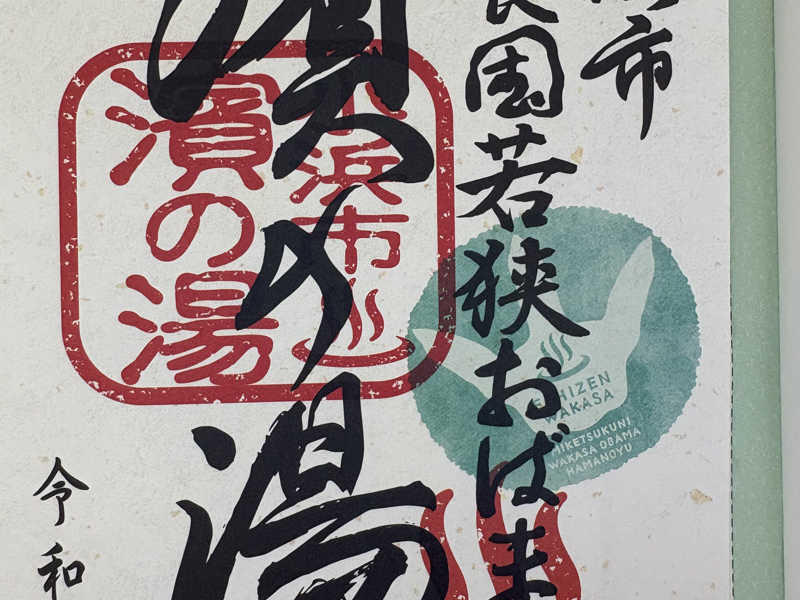 市
国若狭おばま
濱の湯
小浜市
濱の湯
ECHIZEN
WAKASA
MIKETSUKUNI
WAKASA OBAMA
HAMANOYU
令和